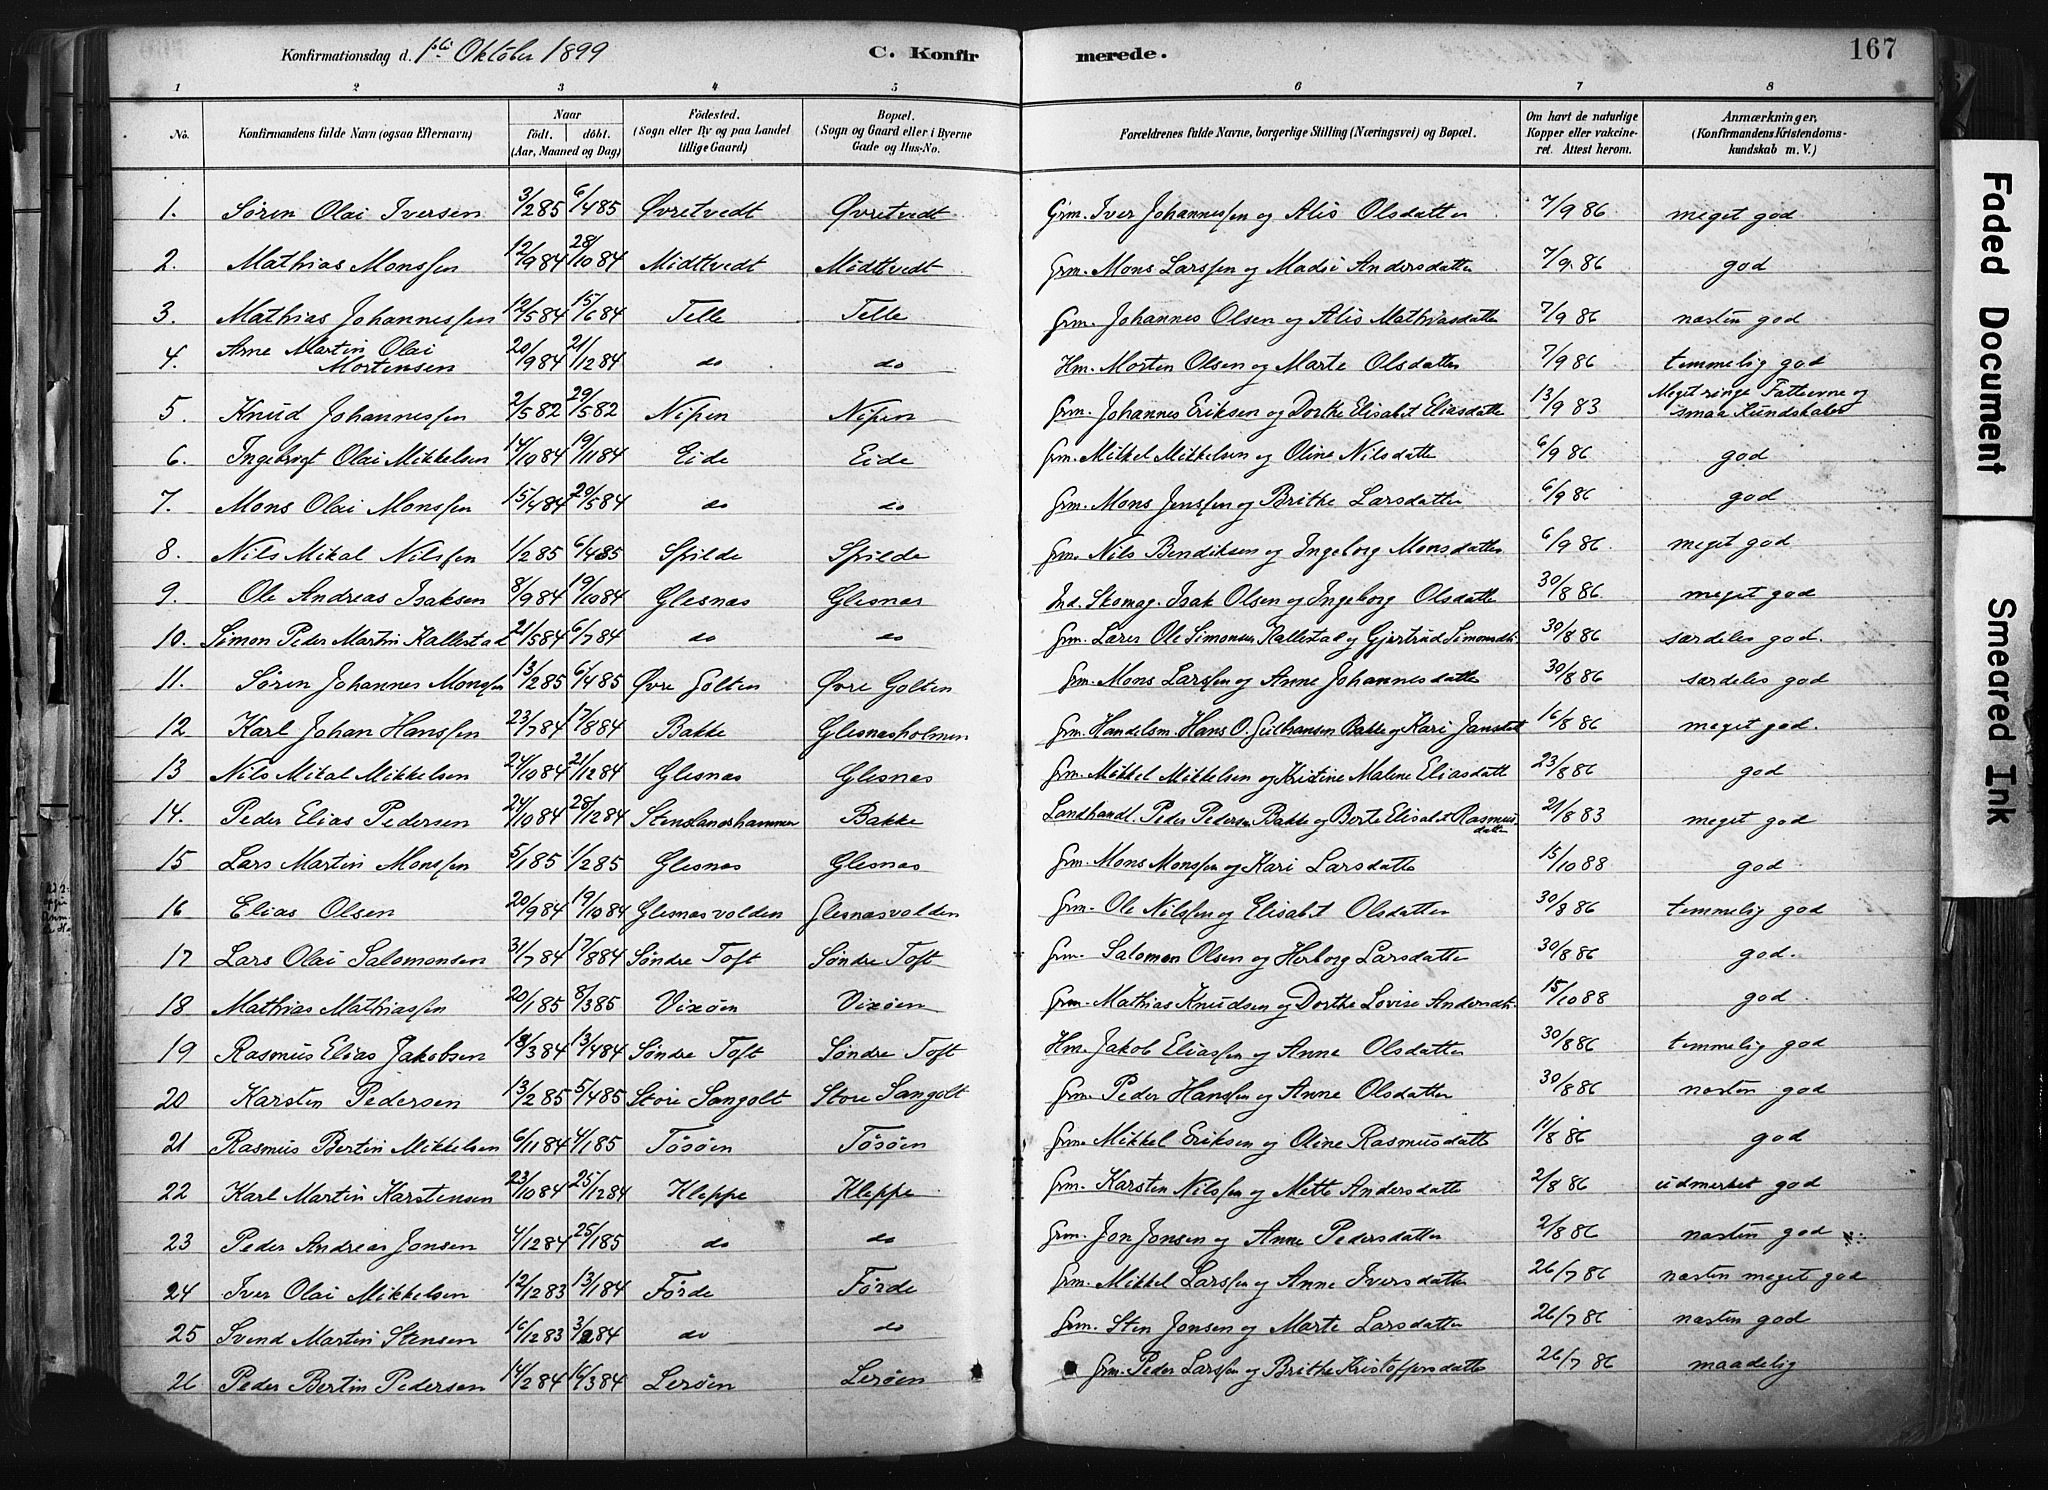 Konfirmationsdag d. 1ste Oktober 1899 C. Konfirmerede. 167
1 2 3 4 5 6 7 8
No. Konfirmandens fulde Navn (ogsaa Efternavn) Naar födt. döbt. (Aar, Maaned og Dag) Födested. (Sogn eller By og paa Landet tillige Gaard) Bopæl. (Sogn og Gaard eller i Byerne Gade og Hus-No. Forældrenes fulde Navne, borgerlige Stilling (Næringsvei) og Bopæl. Om havt de naturlige Kopper eller vakcineret. Attest herom. Anmærkninger. (Konfirmandens Kristendomskundskab m. V.)
1. Søren Olai Iversen 3/2 85 6/4 85 Øvretvedt Øvretvedt Grm. Iver Johannessen og Alis Olsdatter 7/9 86 meget god
2. Mathias Monssen 12/9 84 28/10 84 Midttvedt Midttvedt Grm. Mons Larssen og Madsi Andersdatter 7/9 86 god
3. Mathias Johannessen 12/5 84 15/6 84 Telle Telle Grm. Johannes Olsen og Alis Mathiasdatter 7/9 86 næsten god
4. Arne Martin Olai Mortensen 20/9 84 21/12 84 do do Hm. Morten Olsen og Marte Olsdatter 7/9 86 temmelig god
5. Knud Johannessen 2/5 82 29/5 82 Nipen Nipen Grm. Johannes Eriksen og Dorthe Elisabet Eliasdatte 13/9 83 Meget ringe Fatteevne og smaa Kundskaber
6. Ingebrigt Olai Mikkelsen 14/10 84 19/11 84 Eide Eide Grm. Mikkel Mikkelsen og Oline Nilsdatte 6/9 86 god
7. Mons Olai Monssen 15/4 84 29/5 84 do do Grm. Mons Jenssen og Brithe Larsdatter 6/9 86 god
8. Nils Mikal Nilssen 1/2 85 6/4 85 Spilde Spilde Grm. Nils Bendiksen og Ingeborg Monsdatter 6/9 86 meget god
9. Ole Andreas Isaksen 8/9 84 19/10 84 Glesnæs Glesnæs Ind. Skomag. Isak Olsen og Ingeborg Olsdatte 30/8 86 meget god
10. Simon Peder Martin Kallestad 21/5 84 6/7 84 do do Grm. Lærer Ole Simonsen Kallestad og Gjertrud Simonsdt. 30/8 86 særdeles god.
11. Søren Johannes Monssen 13/2 85 6/4 85 Øvre Golten Øvre Golten Grm. Mons Larssen og Anne Johannesdatter 30/8 86 særdeles god
12 Karl Johan Hanssen 23/7 84 17/8 84 Bakke Glesnæsholmen Grm. Handelsm. Hans O. Gulbransen Bakke og Kari Jansdatt 16/8 86 meget god.
13 Nils Mikal Mikkelsen 24/10 84 21/12 84 Glesnæs Glesnæs Grm. Mikkel Mikkelsen og Kristine Malene Eliasdatt 23/8 86 god
14. Peder Elias Pedersen 24/10 84 28/12 84 Stenslandshammer Bakke Landhandl. Peder Pedersen Bakke og Berte Elisabet Rasmusdatter 21/8 83 meget god
15 Lars Martin Monssen 5/1 85 1/2 85 Glesnæs Glesnæs Grm. Mons Monssen og Kari Larsdatter 15/10 88 god
16 Elias Olsen 20/9 84 19/10 84 Glesnæsvolden Glesnæsvolden Grm. Ole Nilssen og Elisabet Olsdatter 30/8 86 temmelig god
17 Lars Olai Salomonsen 31/7 84 17/8 84 Søndre Toft Søndre Toft Grm. Salomon Olsen og Herborg Larsdatter 30/8 86 god.
18 Mathias Mathiassen 20/1 85 8/3 85 Vixøen Vixøen Grm. Mathias Knudsen og Dorthe Lovise Andersdt. 15/10 88 god
19 Rasmus Elias Jakobsen 18/3 84 13/4 84 Søndre Toft Søndre Toft Hm. Jakob Eliassen og Anne Olsdatter 30/8 86 temmelig god
20 Karsten Pedersen 13/2 85 5/4 85 Store Sangolt Store Sangolt Grm. Peder Hanssen og Anne Olsdatter 30/8 86 næsten god
21 Rasmus Bertin Mikkelsen 6/11 84 4/1 85 Tøsøen Tøsøen Grm. Mikkel Eriksen og Oline Rasmusdatte 11/8 86 god
22 Karl Martin Karstensen 23/10 84 25/12 84 Kleppe Kleppe Grm. Karsten Nilssen og Mette Andersdatter 2/8 86 udmerket god
23 Peder Andreas Jonsen 4/12 84 25/1 85 do do Grm. Jon Jonsen og Anne Pedersdatter 2/8 86 næsten god
24 Iver Olai Mikkelsen 12/12 83 13/1 84 Førde Førde Grm. Mikkel Larssen og Anne Iversdatter 26/7 86 næsten meget god
25 Svend Martin Stensen 16/12 83 3/2 84 do do Grm. Sten Jonsen og Marte Larsdatter 26/7 86 næsten god
26 Peder Bertin Pedersen 14/2 84 16/3 84 Lerøen Lerøen Grm. Peder Larssen og Brithe Kristoffersdatter 26/7 86 maadelig
Faded Document
Smeared Ink